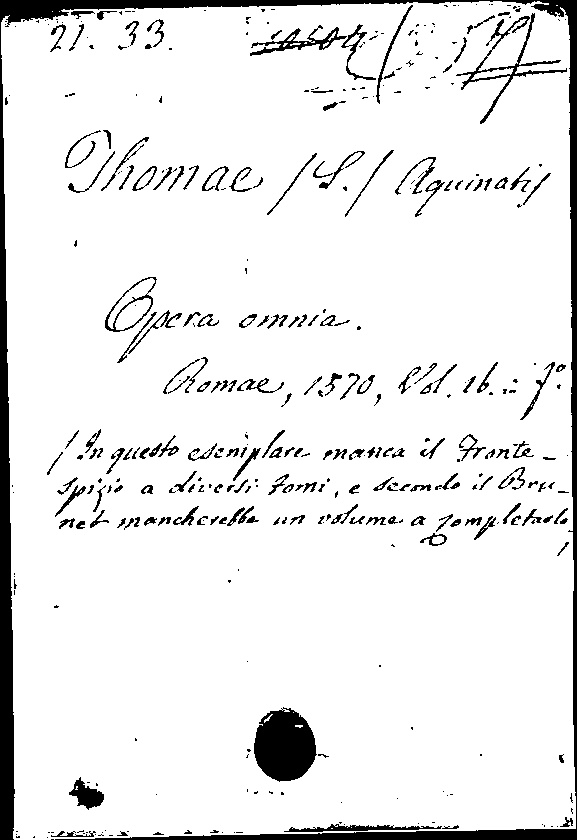 21. 33.
Thomae /S./ Aquinatis
Opera omnia.
Romae, 1570, Vol. 16. in fº.
/In questo esemplare manca il Fronte-
spizio a diversi tomi, e secondo il Bru-
net mancherebbe un volume a completarlo
/